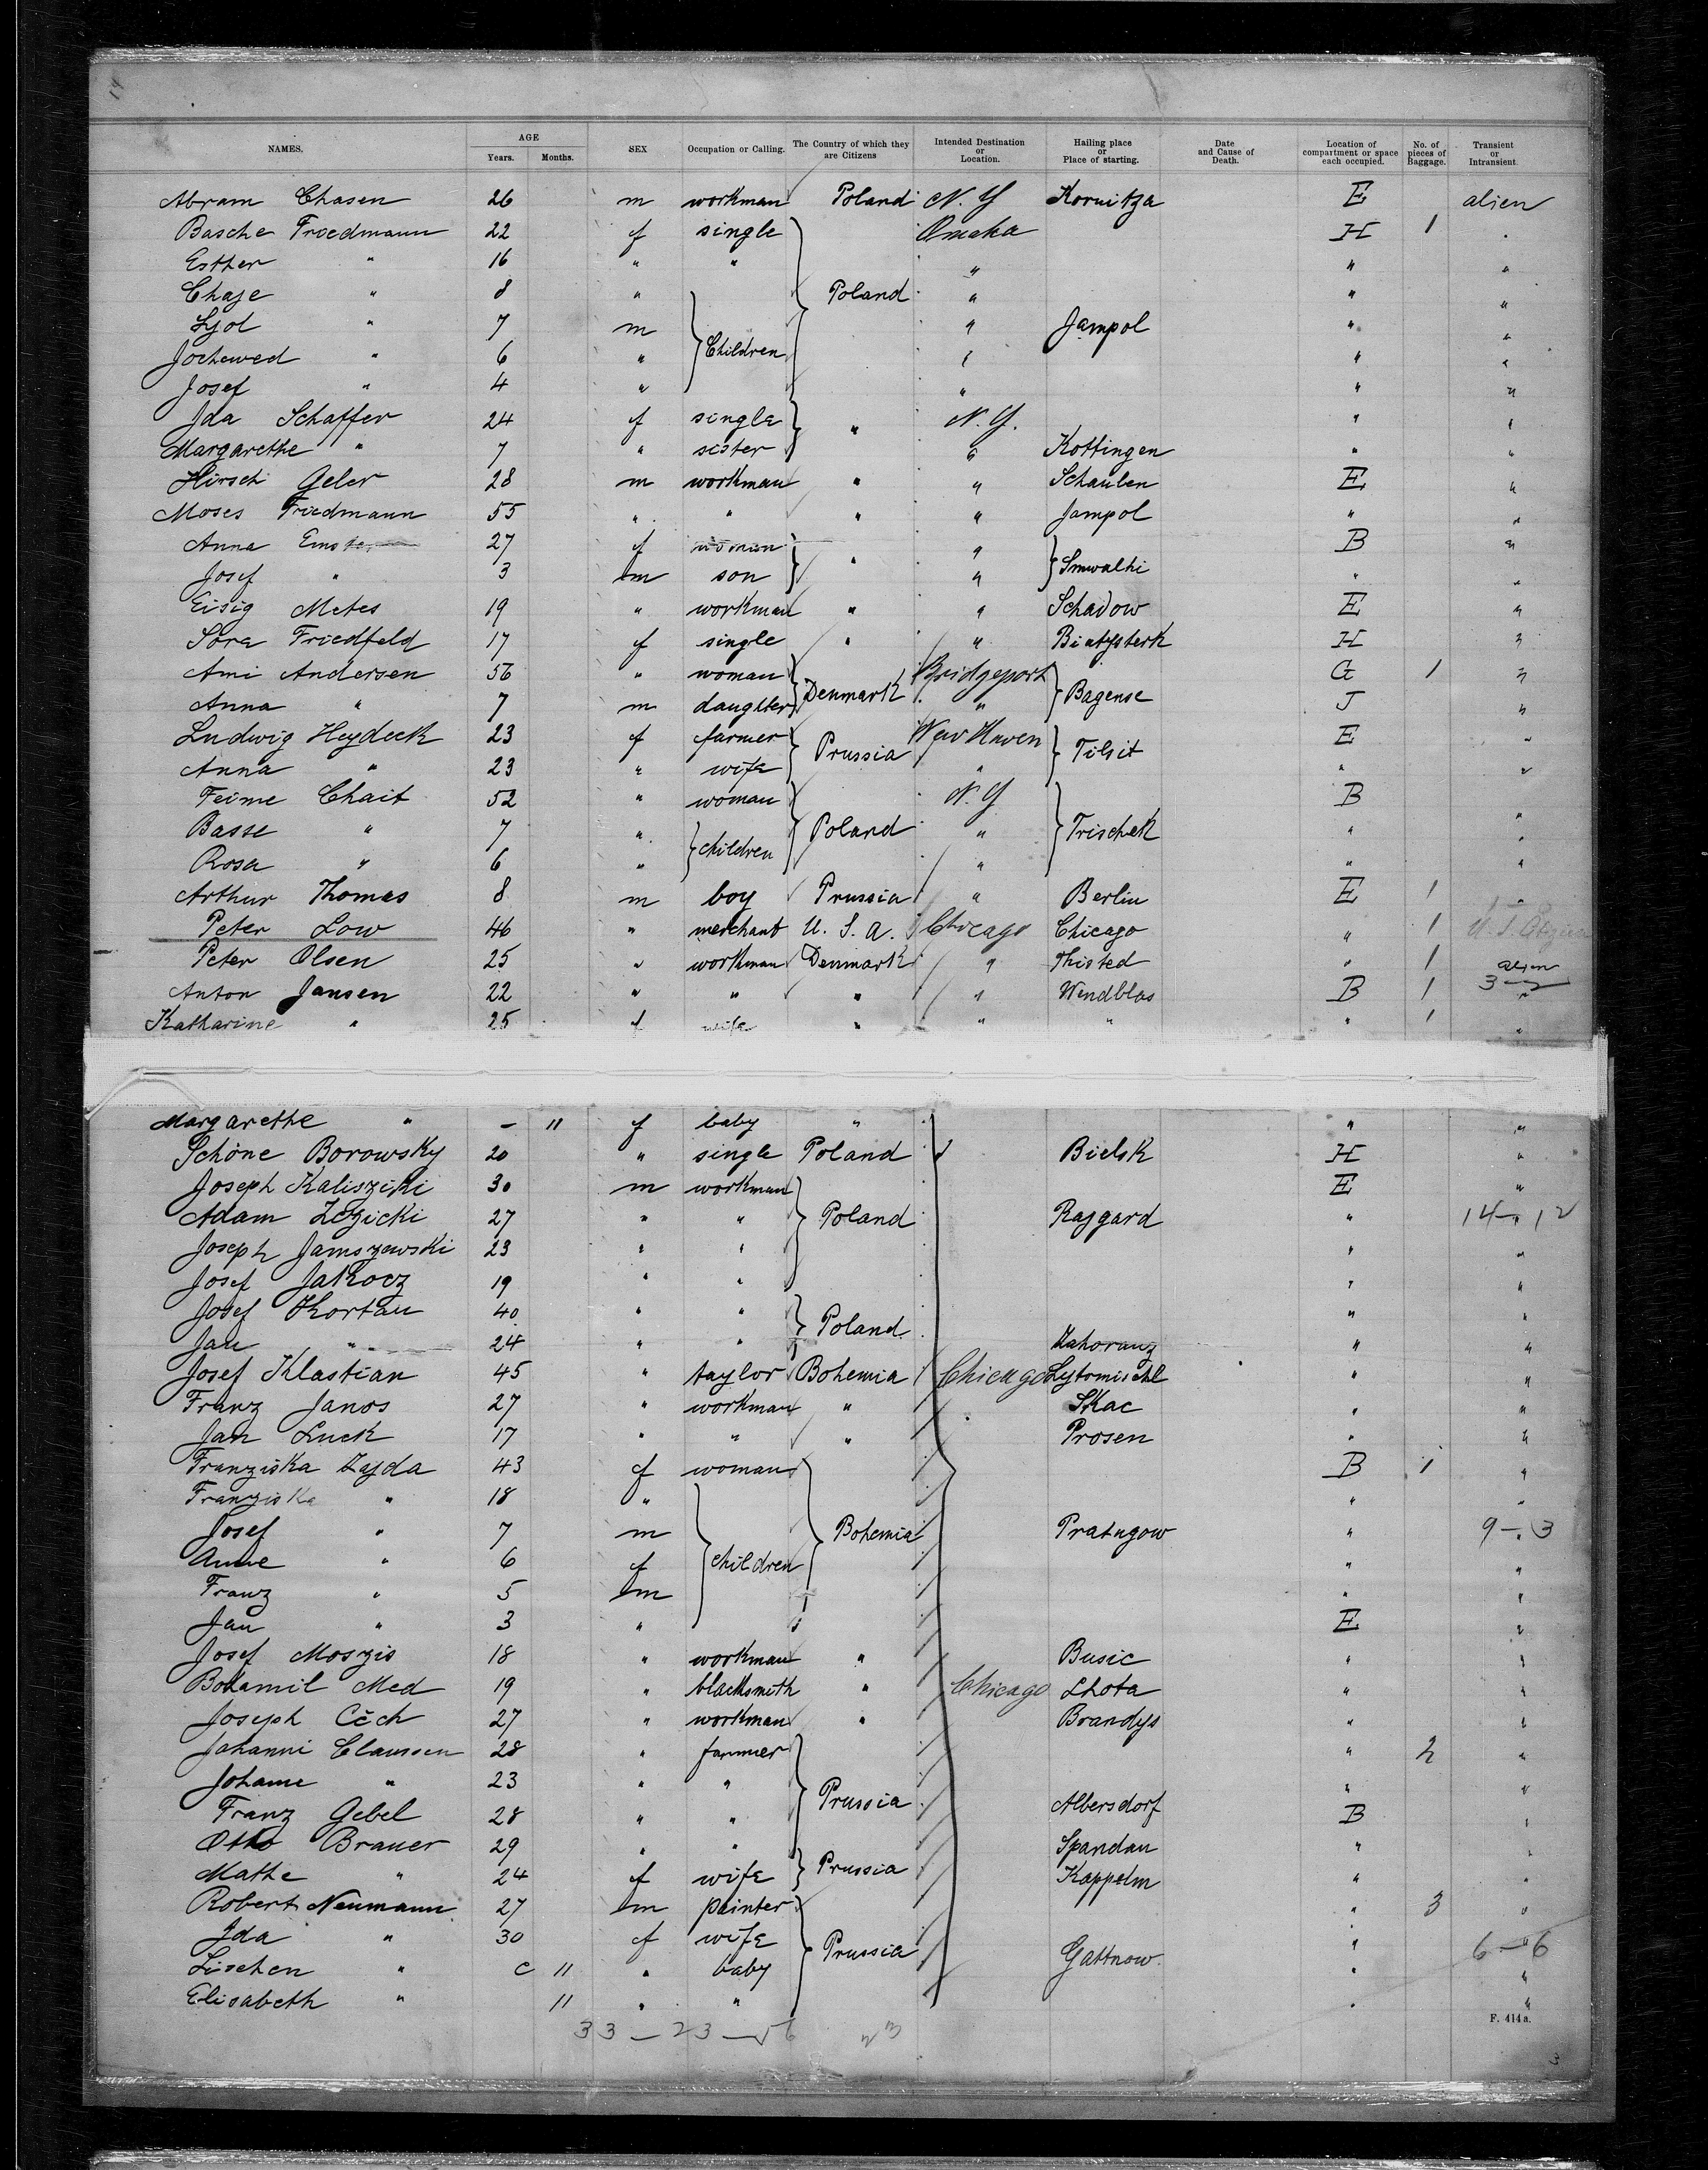 NAMES. AGE Years. Months. SEX Occupation or Calling. The Country of which they are Citizens Intended Destination or Location. Hailing place or Place of starting. Date and Cause of Death. Location of compartment or space each occupied. No. of pieces of Baggage. Transient or Intransient.
Abram Chasen 26 m workman Poland N. Y Kornitza E alien
Basche Friedmann 22 f single Omaha H 1 "
Esther " 16 " " " " "
Chaje " 8 " Poland " " "
" 7 m " Jampol " "
Jochewed " 6 " Children " " "
Josef " 4 " " " "
Ida Schaffer 24 f single " N. Y. " "
Margarethe " 7 " sister " Kottingen " "
Hirsch Geler 28 m workman " " Schaulen E "
Moses Friedmann 55 " " " " Jampol " "
Anna 27 f woman " " B "
Josef " 3 m son " Smwalki " "
Eisig Metes 19 " workman " " Schadow E "
Sora Friedfeld 17 f single " " Biatysterk H "
Ami Andersen 56 " woman Denmark Bridgeport Bagense G 1 "
Anna " 7 m daughter " J "
Ludwig Heydeck 23 f farmer Prussia New Haven Tilsit E "
Anna " 23 " wife " " "
Feime Chait 52 " woman N. Y B "
Basse " 7 " children Poland " Trischek " "
Rosa " 6 " " " "
Arthur Thomas 8 m boy Prussia " Berlin E 1 "
Peter Low 46 " merchant U. S. A. Chicago Chicago " 1 U. S.
Peter Olsen 25 " workman Denmark " Thisted " 1 alien
Anton Jansen 22 " " " " Wendblas B 1 3 "
Katharine " 25 f wife " " " " 1 "
Margarethe " - 11 f baby " " "
Schöne Borowsky 20 " single Poland Bielsk H "
Joseph Kaliszki 30 m workman E "
Adam 27 " " Poland Rajgard " 14-12
Joseph Jamszewski 23 " " " "
Josef Jakocz 19 " " " "
Josef Kortau 40 " " Poland " "
Jan " 24 " " Zahoranz " "
Josef Klastian 45 " taylor Bohemia Chicago Lytomischl " "
Franz Janos 27 " workman " Skac " "
Jan Luck 17 " " " Prosen " "
Franziska Zajda 43 f woman B 1 "
Franziska " 18 " " "
Josef " 7 m Bohemia Pratugow " 9-3
Anne " 6 f children " "
Franz " 5 m " "
Jan " 3 " E "
Josef Moszis 18 " workman " Busic " "
Bohamil Med 19 " blacksmith " Chicago Lhota " "
Joseph Cêch 27 " workman " Brandys " "
Johanni Claussen 28 " farmer " 2 "
Johanne " 23 " " Prussia " "
Franz Gebel 28 " " Albersdorf B "
Otto Brauer 29 " " Spandau " "
Mathe " 24 f wife Prussia Kappelm " "
Robert Neumann 27 m painter " 3 "
Ida " 30 f wife Prussia Gattnow " 6-6
Lischen " 11 " baby " "
Elisabeth " 11 " " " "
33 - 23 - 56 23
F. 414 a.
3